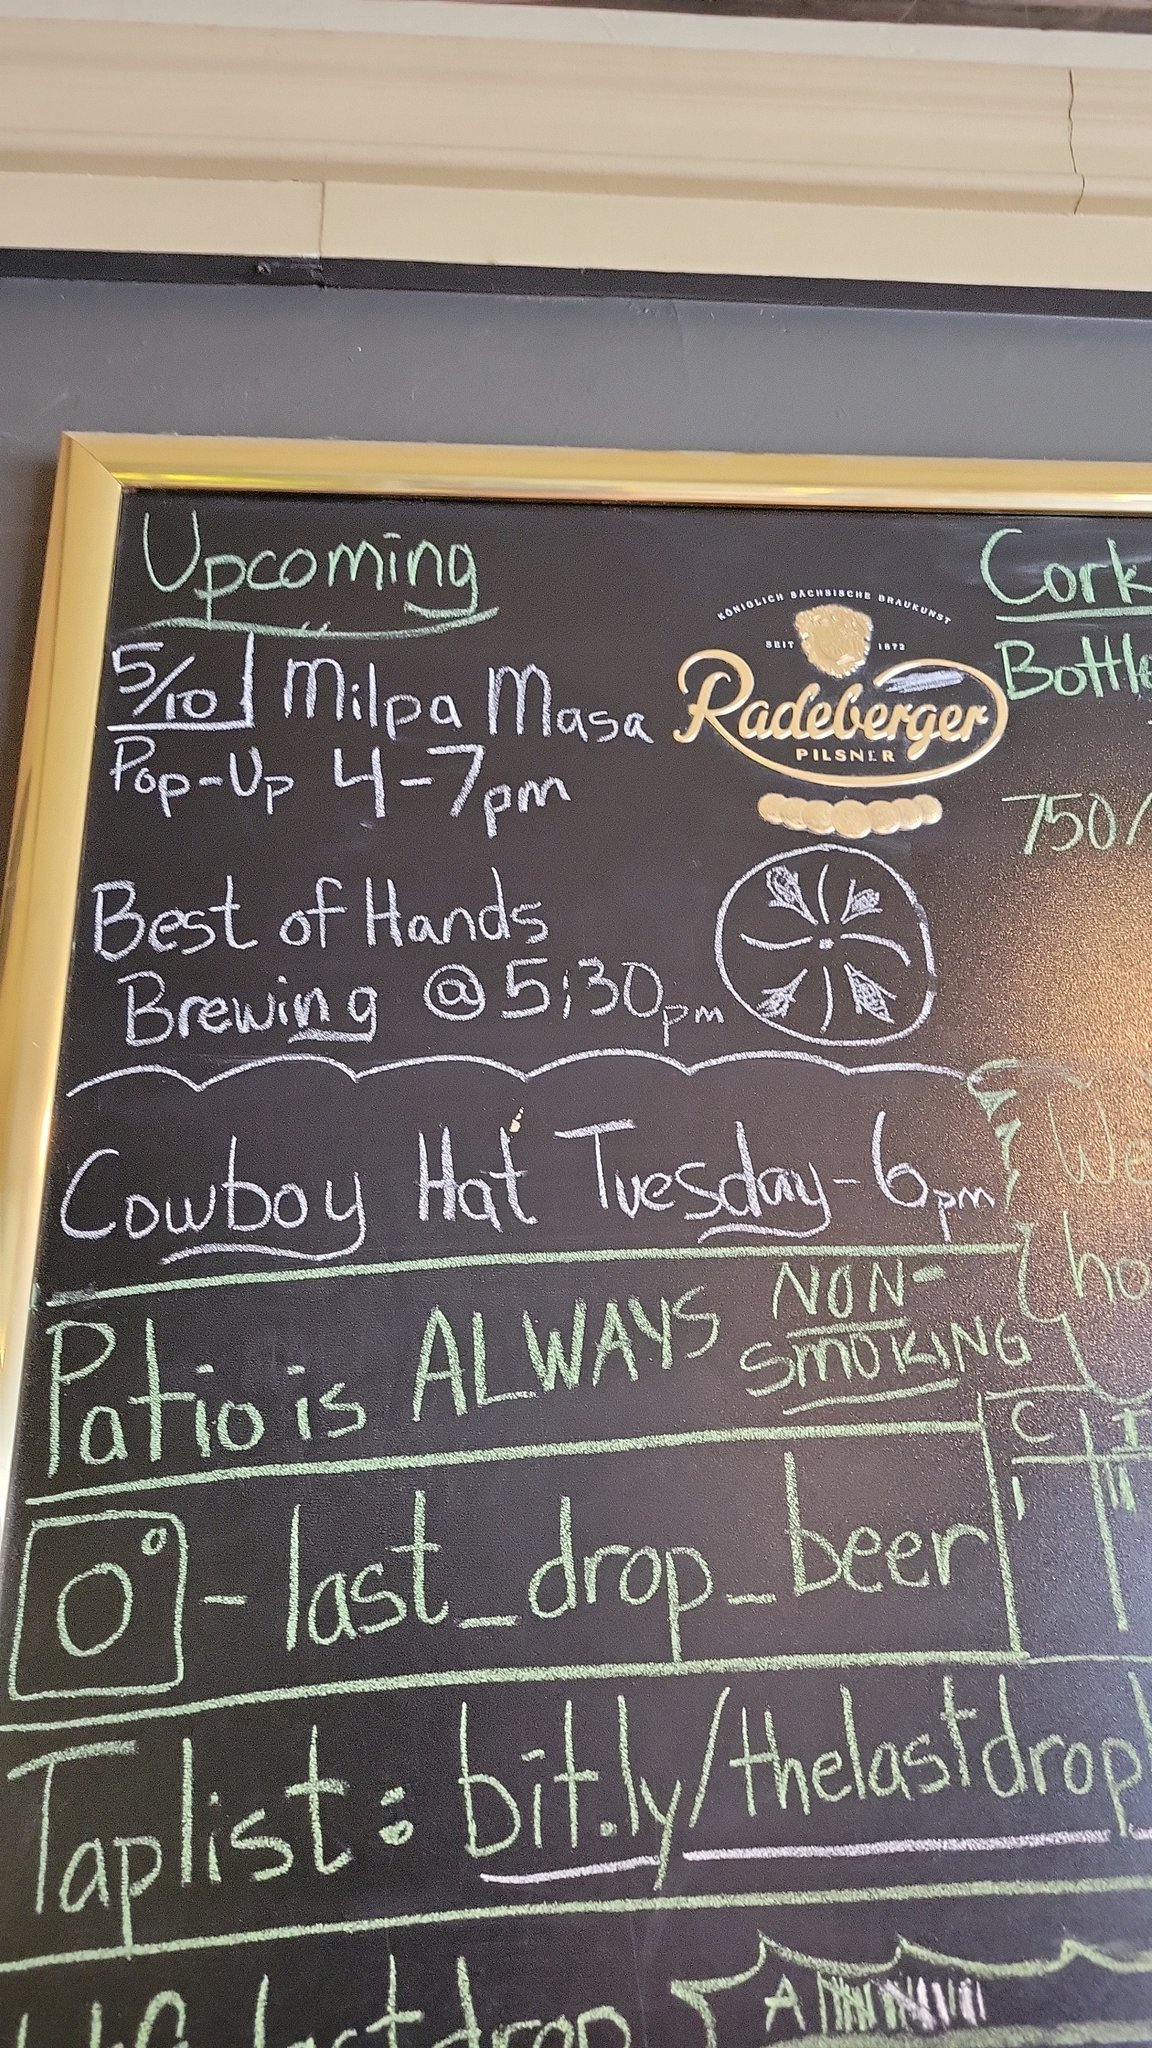 Upcoming
5/10 Milpa Masa
Pop-Up 4-7pm
Best of Hands
Brewing @ 5:30pm
Cowboy Hat Tuesday-6pm
Patio is ALWAYS NON-
SMOKING
- last_drop_beer
Taplist: bit.ly/thelastdrop
KÖNIGLICH SÄCHSISCHE BRAUKUNST
SEIT 1872
Radeberger
PILSNER
Cork
Bottle
750/
We